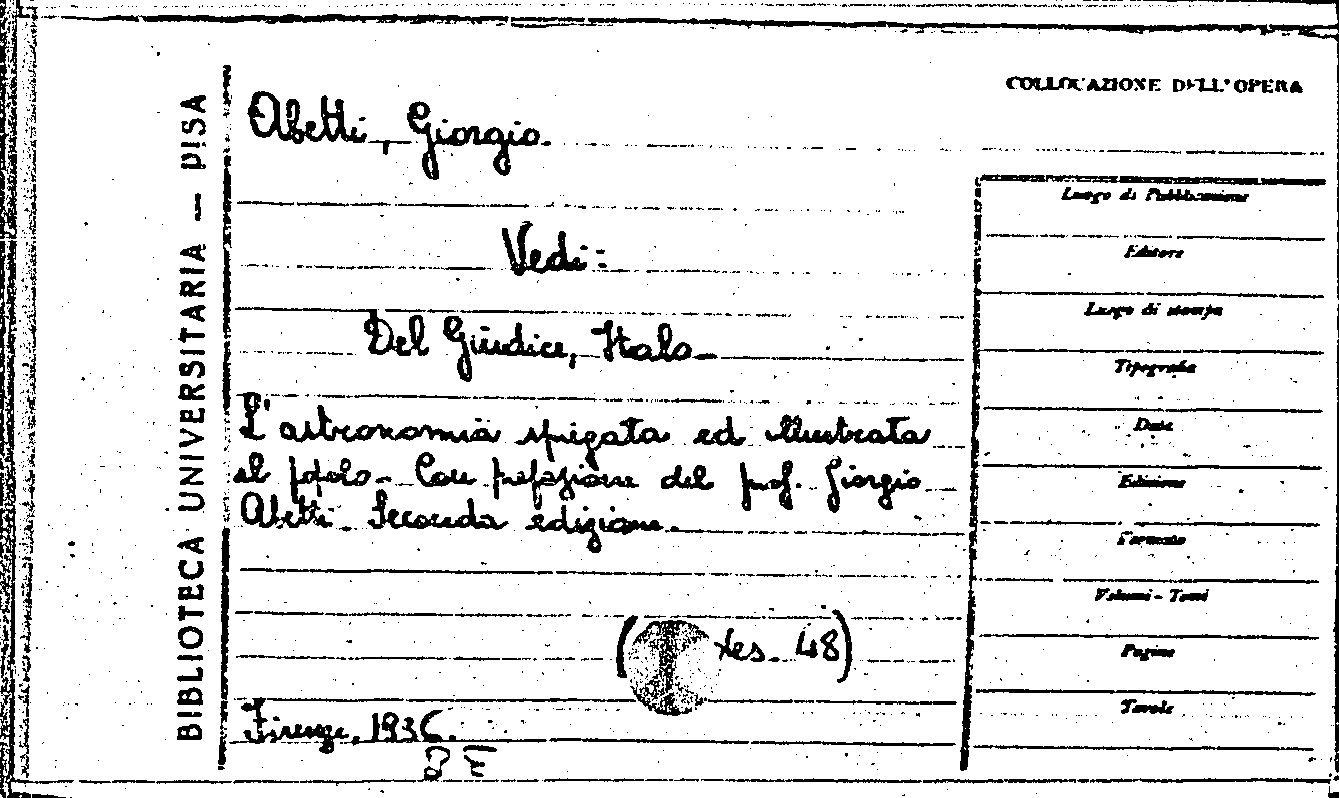 BIBLIOTECA UNIVERSITARIA — PISA
COLLOCAZIONE DELL'OPERA
Abetti, Giorgio.
Vedi:
Del Giudice, Italo
L'astronomia spiegata ed illustrata
al popolo. Con prefazione del prof. Giorgio
Abetti. Seconda edizione.
(tes. 48)
Firenze, 1936.
Luogo di Pubblicazione
Editore
Luogo di stampa
Tipografia
Data
Edizione
Formato
Volumi - Tomi
Pagine
Tavole